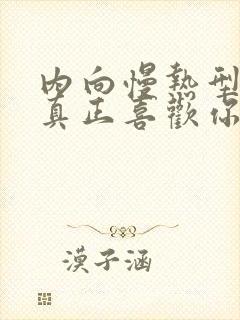 内向慢熱型
真正喜歡你
漠子涵